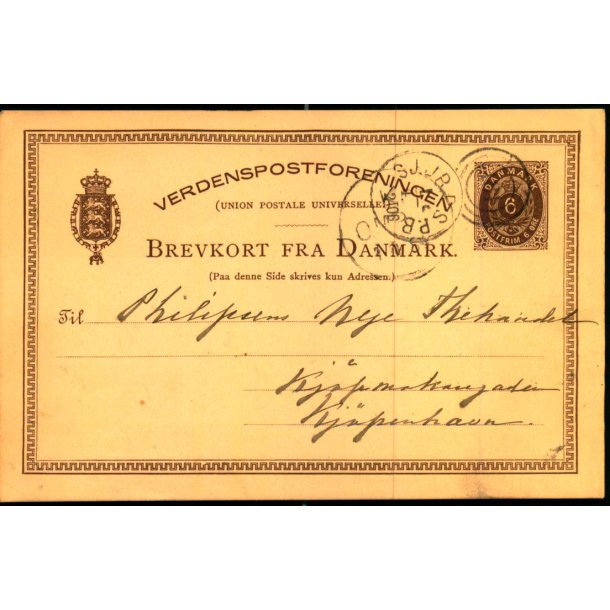 VERDENSPOSTFORENINGEN
(UNION POSTALE UNIVERSELLE)
BREVKORT FRA DANMARK.
(Paa denne Side skrives kun Adressen.)
DANMARK
6
POSTFRIM 6 ØRE
SJ.JB.P.SP.B.
Til Philipsens Nye Thehandel
Kjøbmakergaden
Kjöpenhavn.